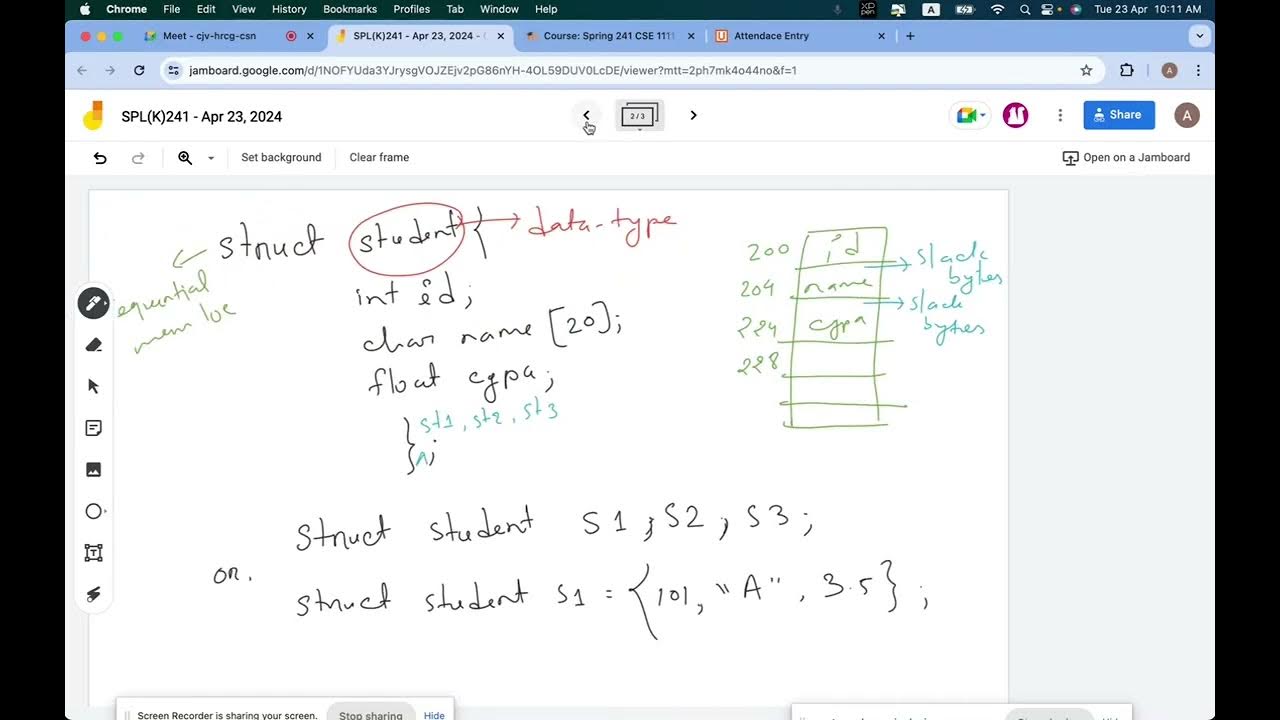 Chrome File Edit View History Bookmarks Profiles Tab Window Help
XP PEN A Tue 23 Apr 10:11 AM
Meet - cjv-hrcg-csn
SPL(K)241 - Apr 23, 2024 -
Course: Spring 241 CSE 1111
Attendace Entry
jamboard.google.com/d/1NOFYUda3YJrysgVOJZEjv2pG86nYH-4OL59DUV0LcDE/viewer?mtt=2ph7mk4o44no&f=1
A
SPL(K)241 - Apr 23, 2024
2 / 3
Share
A
Set background Clear frame
Open on a Jamboard
struct student { → data-type
sequential
mem loc
int id;
char name [20];
float cgpa;
st1, st2, st3
} A;
200 id
slack bytes
204 name
slack bytes
224 cgpa
228
struct student S1, S2, S3;
or.
struct student S1 = {101, "A", 3.5};
Screen Recorder is sharing your screen. Stop sharing Hide